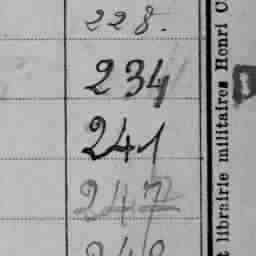 228.
234
241
247
librairie militaires Henri